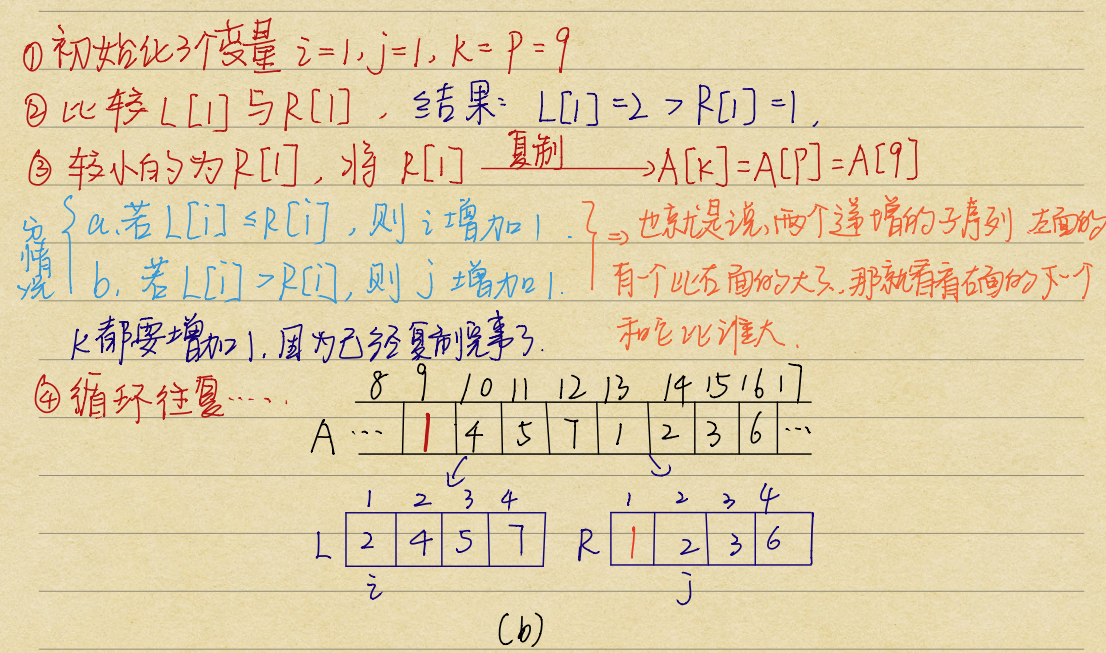 ①初始化3个变量 i=1,j=1,k=P=9
②比较L[1]与R[1],结果:L[1]=2>R[1]=1,
③较小的为R[1],将R[1] 复制→A[K]=A[P]=A[9]
分情况
a.若L[i]≤R[i],则i增加1.
b.若L[i]>R[i],则j增加1.
⇒也就是说,两个递增的子序列 左面的
有一个比右面的大了,那就看看右面的下一个
和它比谁大.
K都要增加1,因为已经复制完事了.
④循环往复……
8 9 10 11 12 13 14 15 16 17
A … 1 4 5 7 1 2 3 6 …
1 2 3 4 1 2 3 4
L 2 4 5 7 R 1 2 3 6
i j
(b)